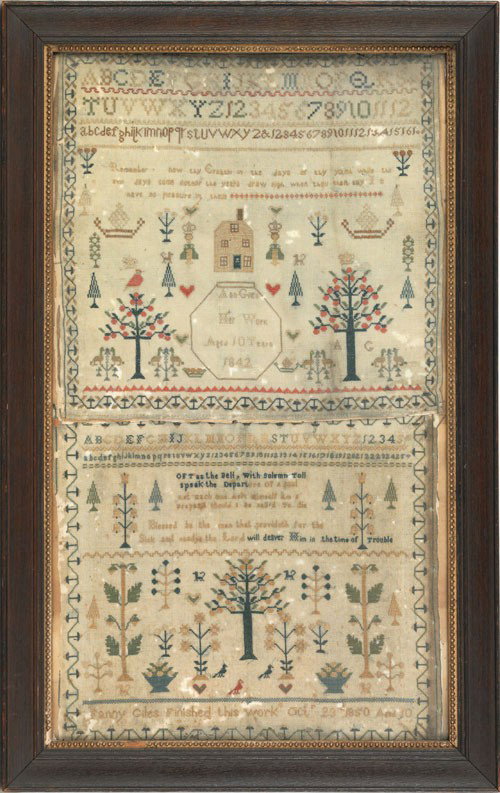 ABCDEFGHIJKLMNOPQR
TUVWXYZ123456789101112
abcdefghijklmnopqrstuvwxyz&12345678910111213141516
Remember now thy Creator in the days of thy youth while the
days come nor the years draw nigh when thou shalt say I
have no pleasure in them
Her Work
Aged 10 Years
1842
A G
ABCDEFGHIJKLMNOPQRSTUVWXYZ12345
OFT as the Bell, With Solemn Toll
speak the Departure of a soul
each one ask himself Am I
prepard should I be calld To die
Blessed be the man that provideth for the
Sick and needy the Lord will deliver Him in the time of Trouble
Fanny Giles Finished this Work Octr 23 1850 Aged 10